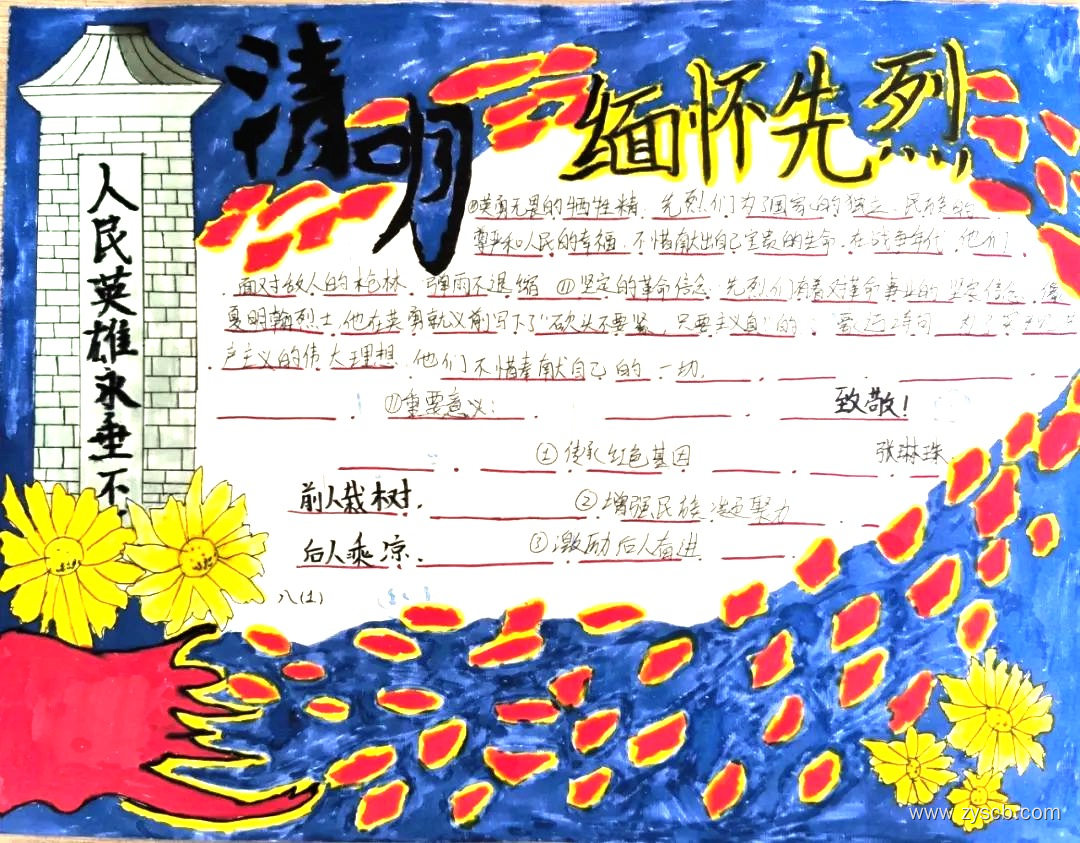 清明
缅怀先烈
人民英雄永垂不
英勇无畏的牺牲精 先烈们为了国家的独立、民族的
尊严和人民的幸福,不惜献出自己宝贵的生命,在战争年代,他们
面对敌人的枪林 弹雨不退缩 ⑪坚定的革命信念 先烈们有着对革命事业的坚定信念 像
夏明翰烈士,他在英勇就义前写下了"砍头不要紧,只要主义 的
产主义的伟大理想 他们不惜奉献自己的一切.
重要意义:
致敬!
① 传承红色基因
张琳珠
前人栽树.
② 增强民族凝聚力
后人乘凉.
激励后人奋进
八(1)
www.zyscb.com